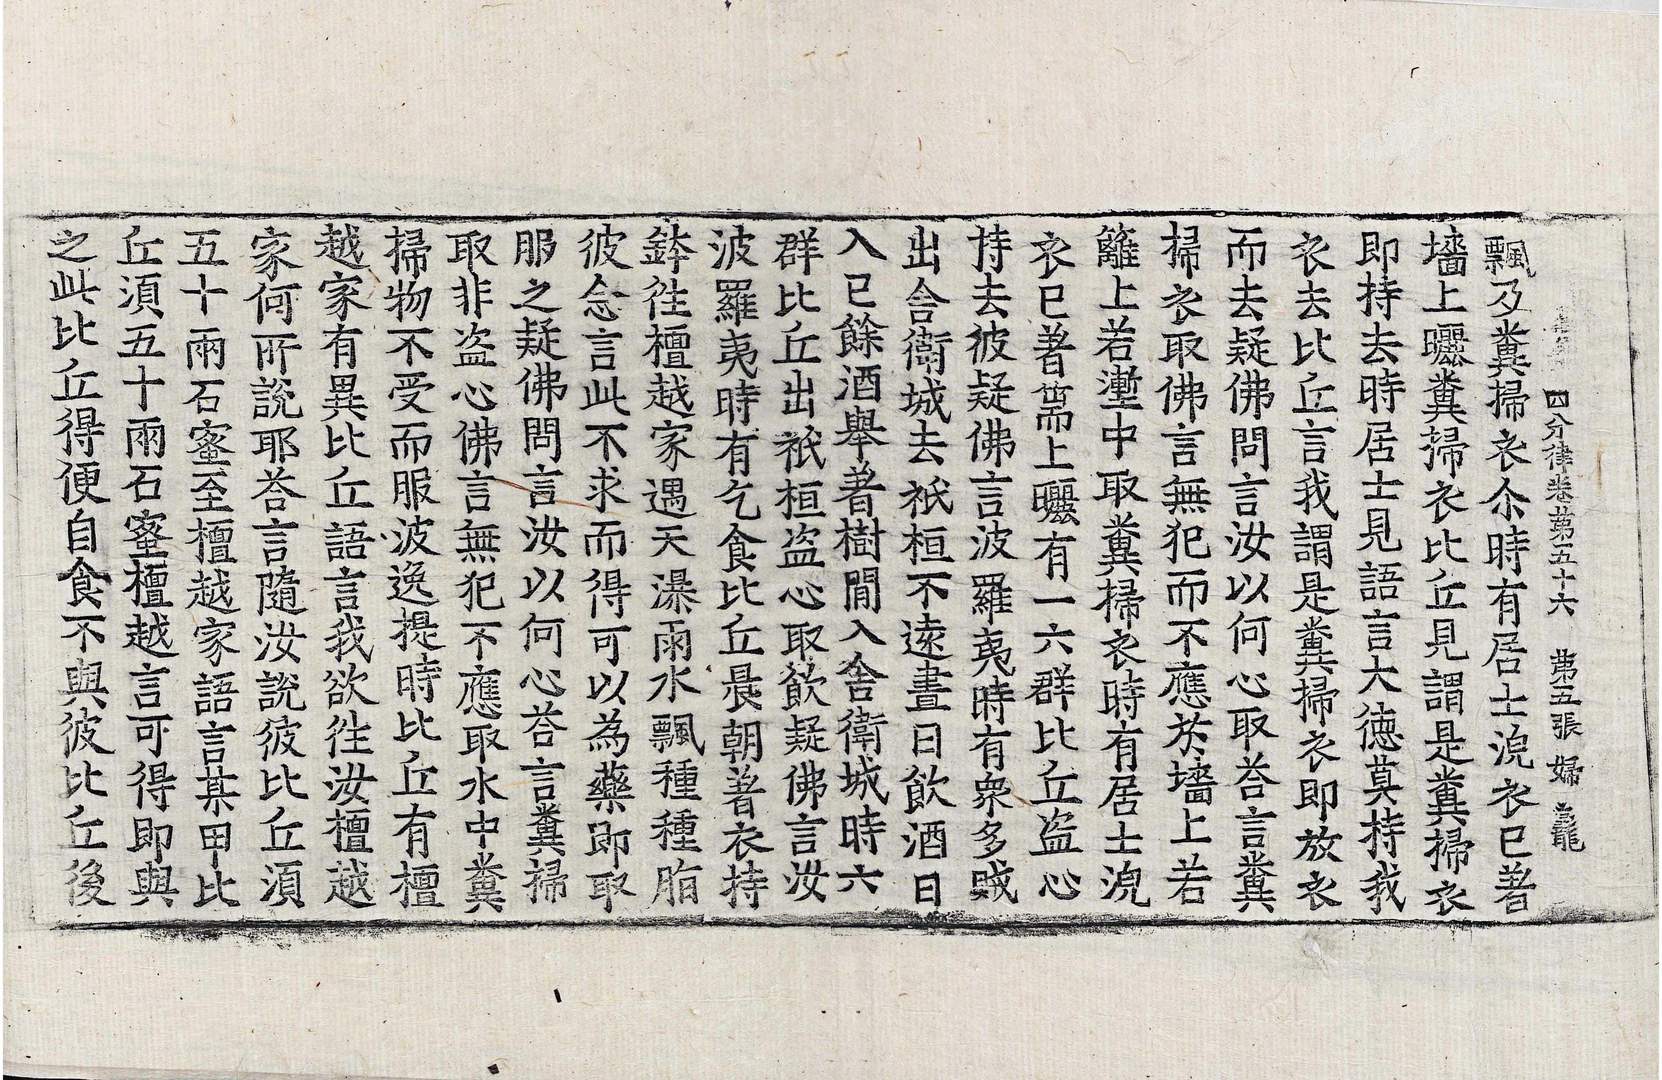 四分律卷第五十六 第五張 婦 龍
飄及糞掃衣尒時有居士浣衣已著
墻上曬糞掃衣比丘見謂是糞掃衣
即持去時居士見語言大徳莫持我
衣去比丘言我謂是糞掃衣即放衣
而去疑佛問言汝以何心取荅言糞
掃衣取佛言無犯而不應於墻上若
籬上若壍中取糞掃衣時有居士浣
衣已著上曬有一六群比丘盜心
持去彼疑佛言波羅夷時有衆多賊
出舍衛城去祇桓不遠晝日飲酒日
入已餘酒舉著樹間入舍衛城時六
群比丘出祇桓盜心取飲疑佛言汝
波羅夷時有乞食比丘晨朝著衣持
鉢徃檀越家遇天瀑雨水飄種種脂
彼念言此不求而得可以為藥即取
服之疑佛問言汝以何心荅言糞掃
取非盜心佛言無犯不應取水中糞
掃物不受而服波逸提時比丘有檀
越家有異比丘語言我欲徃汝檀越
家何所說耶荅言隨汝說彼比丘須
五十兩石蜜至檀越家語言某甲比
丘須五十兩石蜜檀越言可得即與
之此比丘得便自食不與彼比丘後